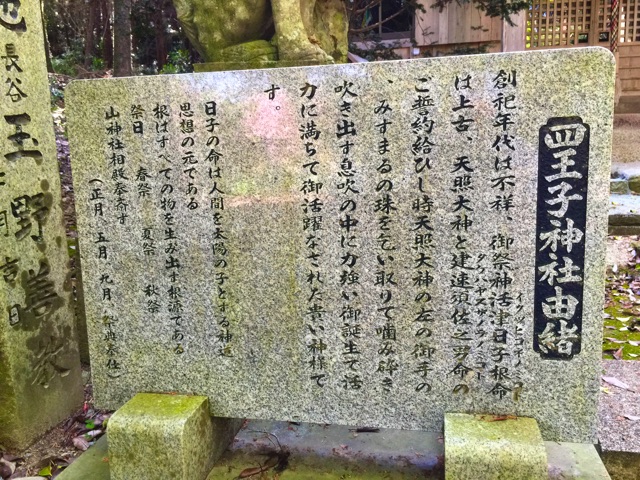 四王子神社由緒
創祀年代は不祥、御祭神活津日子根命
イクツヒコネノ
は上古、天照大神と建速須佐之男命の
タケハヤスサノヲノミコト
ご誓約給ひし時天照大神の左の御手の
、みすまるの珠を乞い取りて噛み砕き
吹き出す息吹の中に力強い御誕生で活
力に満ちて御活躍なされた貴い神様で
す。
日子の命は人間を太陽の子とする神道
思想の元である
根はすべての物を生み出す根源である
祭日 春祭 夏祭 秋祭
山神社相殿奉斎す
(正月 五月 九月 祭典奉仕)
長谷
玉野善教